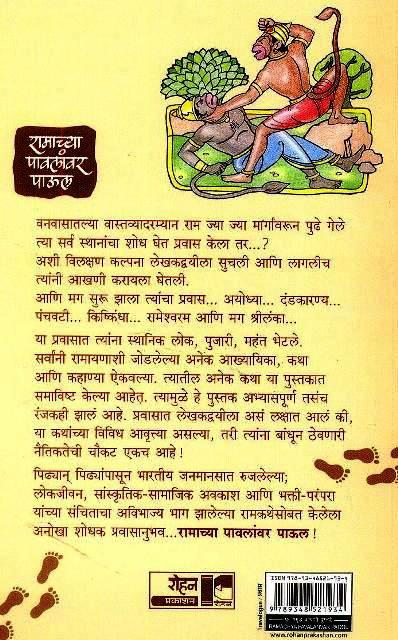 रामाच्या
पावलांवर
पाऊल
वनवासातल्या वास्तव्यादरम्यान राम ज्या ज्या मार्गांवरून पुढे गेले
त्या सर्व स्थानांचा शोध घेत प्रवास केला तर...?
अशी विलक्षण कल्पना लेखकद्वयीला सुचली आणि लागलीच
त्यांनी आखणी करायला घेतली.
आणि मग सुरू झाला त्यांचा प्रवास... अयोध्या... दंडकारण्य...
पंचवटी... किष्किंधा... रामेश्वरम आणि मग श्रीलंका...
या प्रवासात त्यांना स्थानिक लोक, पुजारी, महंत भेटले.
सर्वांनी रामायणाशी जोडलेल्या अनेक आख्यायिका, कथा
आणि कहाण्या ऐकवल्या. त्यातील अनेक कथा या पुस्तकात
समाविष्ट केल्या आहेत. त्यामुळे हे पुस्तक अभ्यासपूर्ण तसंच
रंजकही झालं आहे. प्रवासात लेखकद्वयीला असं लक्षात आलं की,
या कथांच्या विविध आवृत्त्या असल्या, तरी त्यांना बांधून ठेवणारी
नैतिकतेची चौकट एकच आहे!
पिढ्यान् पिढ्यांपासून भारतीय जनमानसात रुजलेल्या;
लोकजीवन, सांस्कृतिक-सामाजिक अवकाश आणि भक्ती-परंपरा
यांच्या संचिताचा अविभाज्य भाग झालेल्या रामकथेसोबत केलेला
अनोखा शोधक प्रवासानुभव...रामाच्या पावलांवर पाऊल!
रोहन
प्रकाशन
ISBN 978-93-48521-93-4
9 789348 521934
RAMACHYA PAVALANVAR PAUL
www.rohanprakashan.com